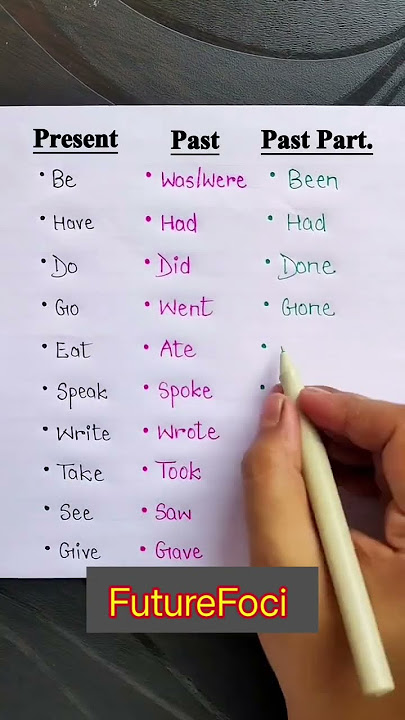 Present Past Past Part.
• Be • Was/Were • Been
• Have • Had • Had
• Do • Did • Done
• Go • Went • Gone
• Eat • Ate •
• Speak • Spoke •
• Write • Wrote
• Take • Took
• See • Saw
• Give • Gave
FutureFoci